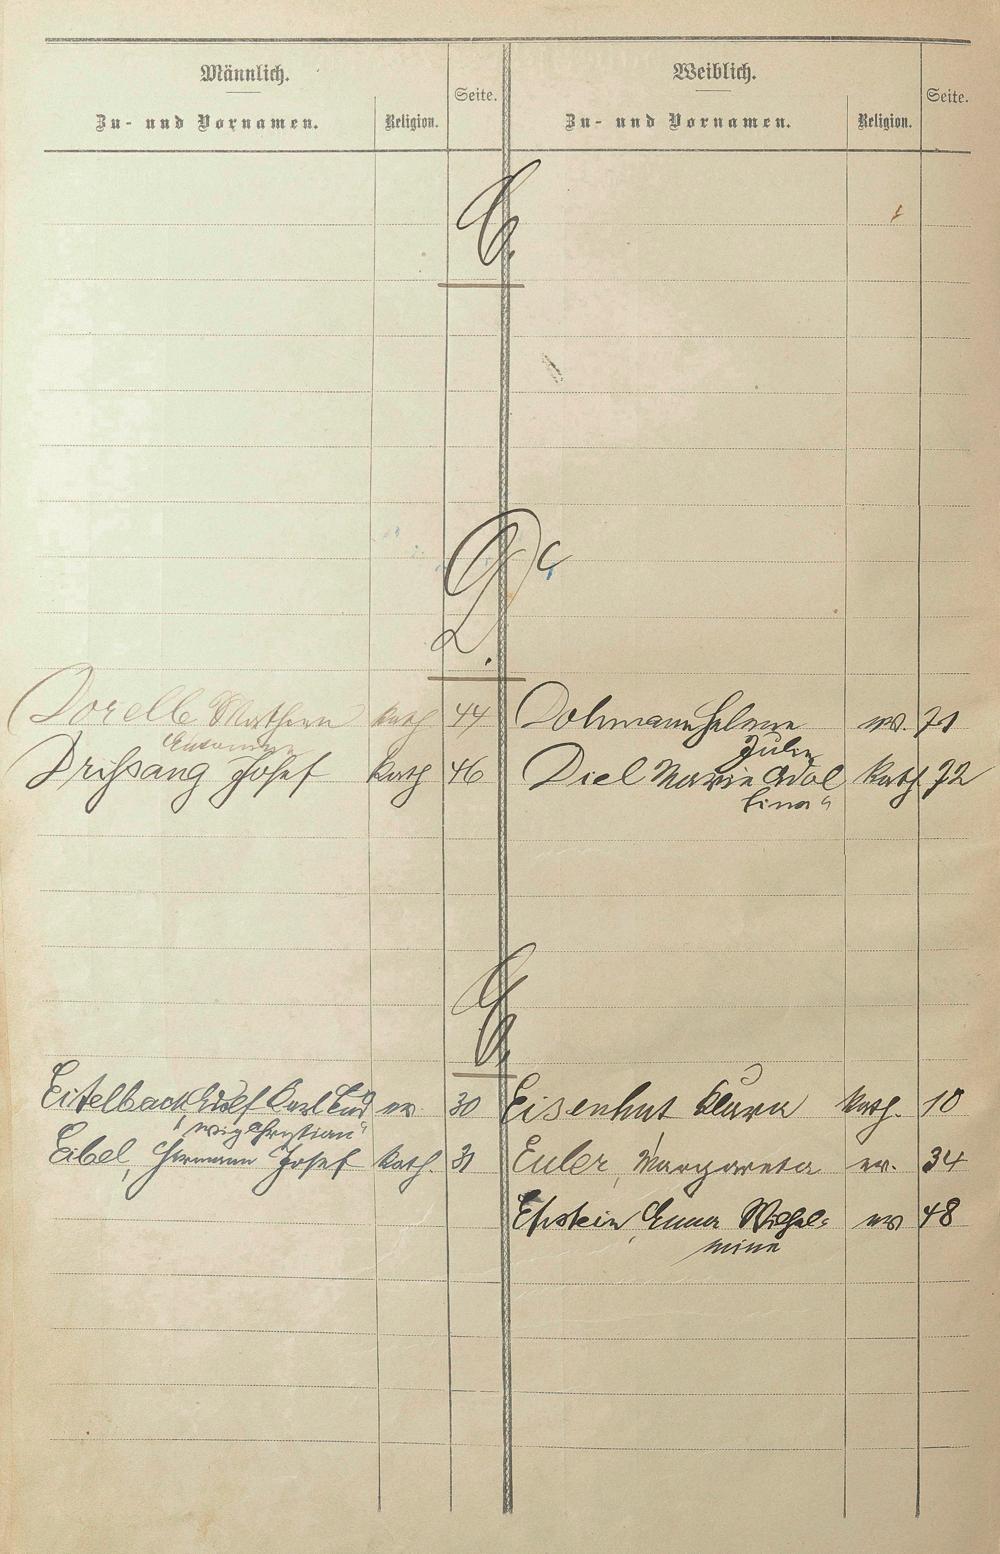 Männlich.
Weiblich.
Seite.
Seite.
Zu- und Vornamen.
Religion.
Zu- und Vornamen.
Religion.
C.
D.
Dorelle kath 44
Dohmann Helene ev. 71
Julie
Drißang Josef kath 46
Diel Maria Adol kath. 72
fina"
E.
Eitelbach, Adolf Carl Lud ev. 30
Eisenhut Klara kath. 10
wig Christian"
Eibel, Hermann Josef kath. 31
Euler, Margareta ev. 34
Epstein, Emma Wilhel= ev 48
mine